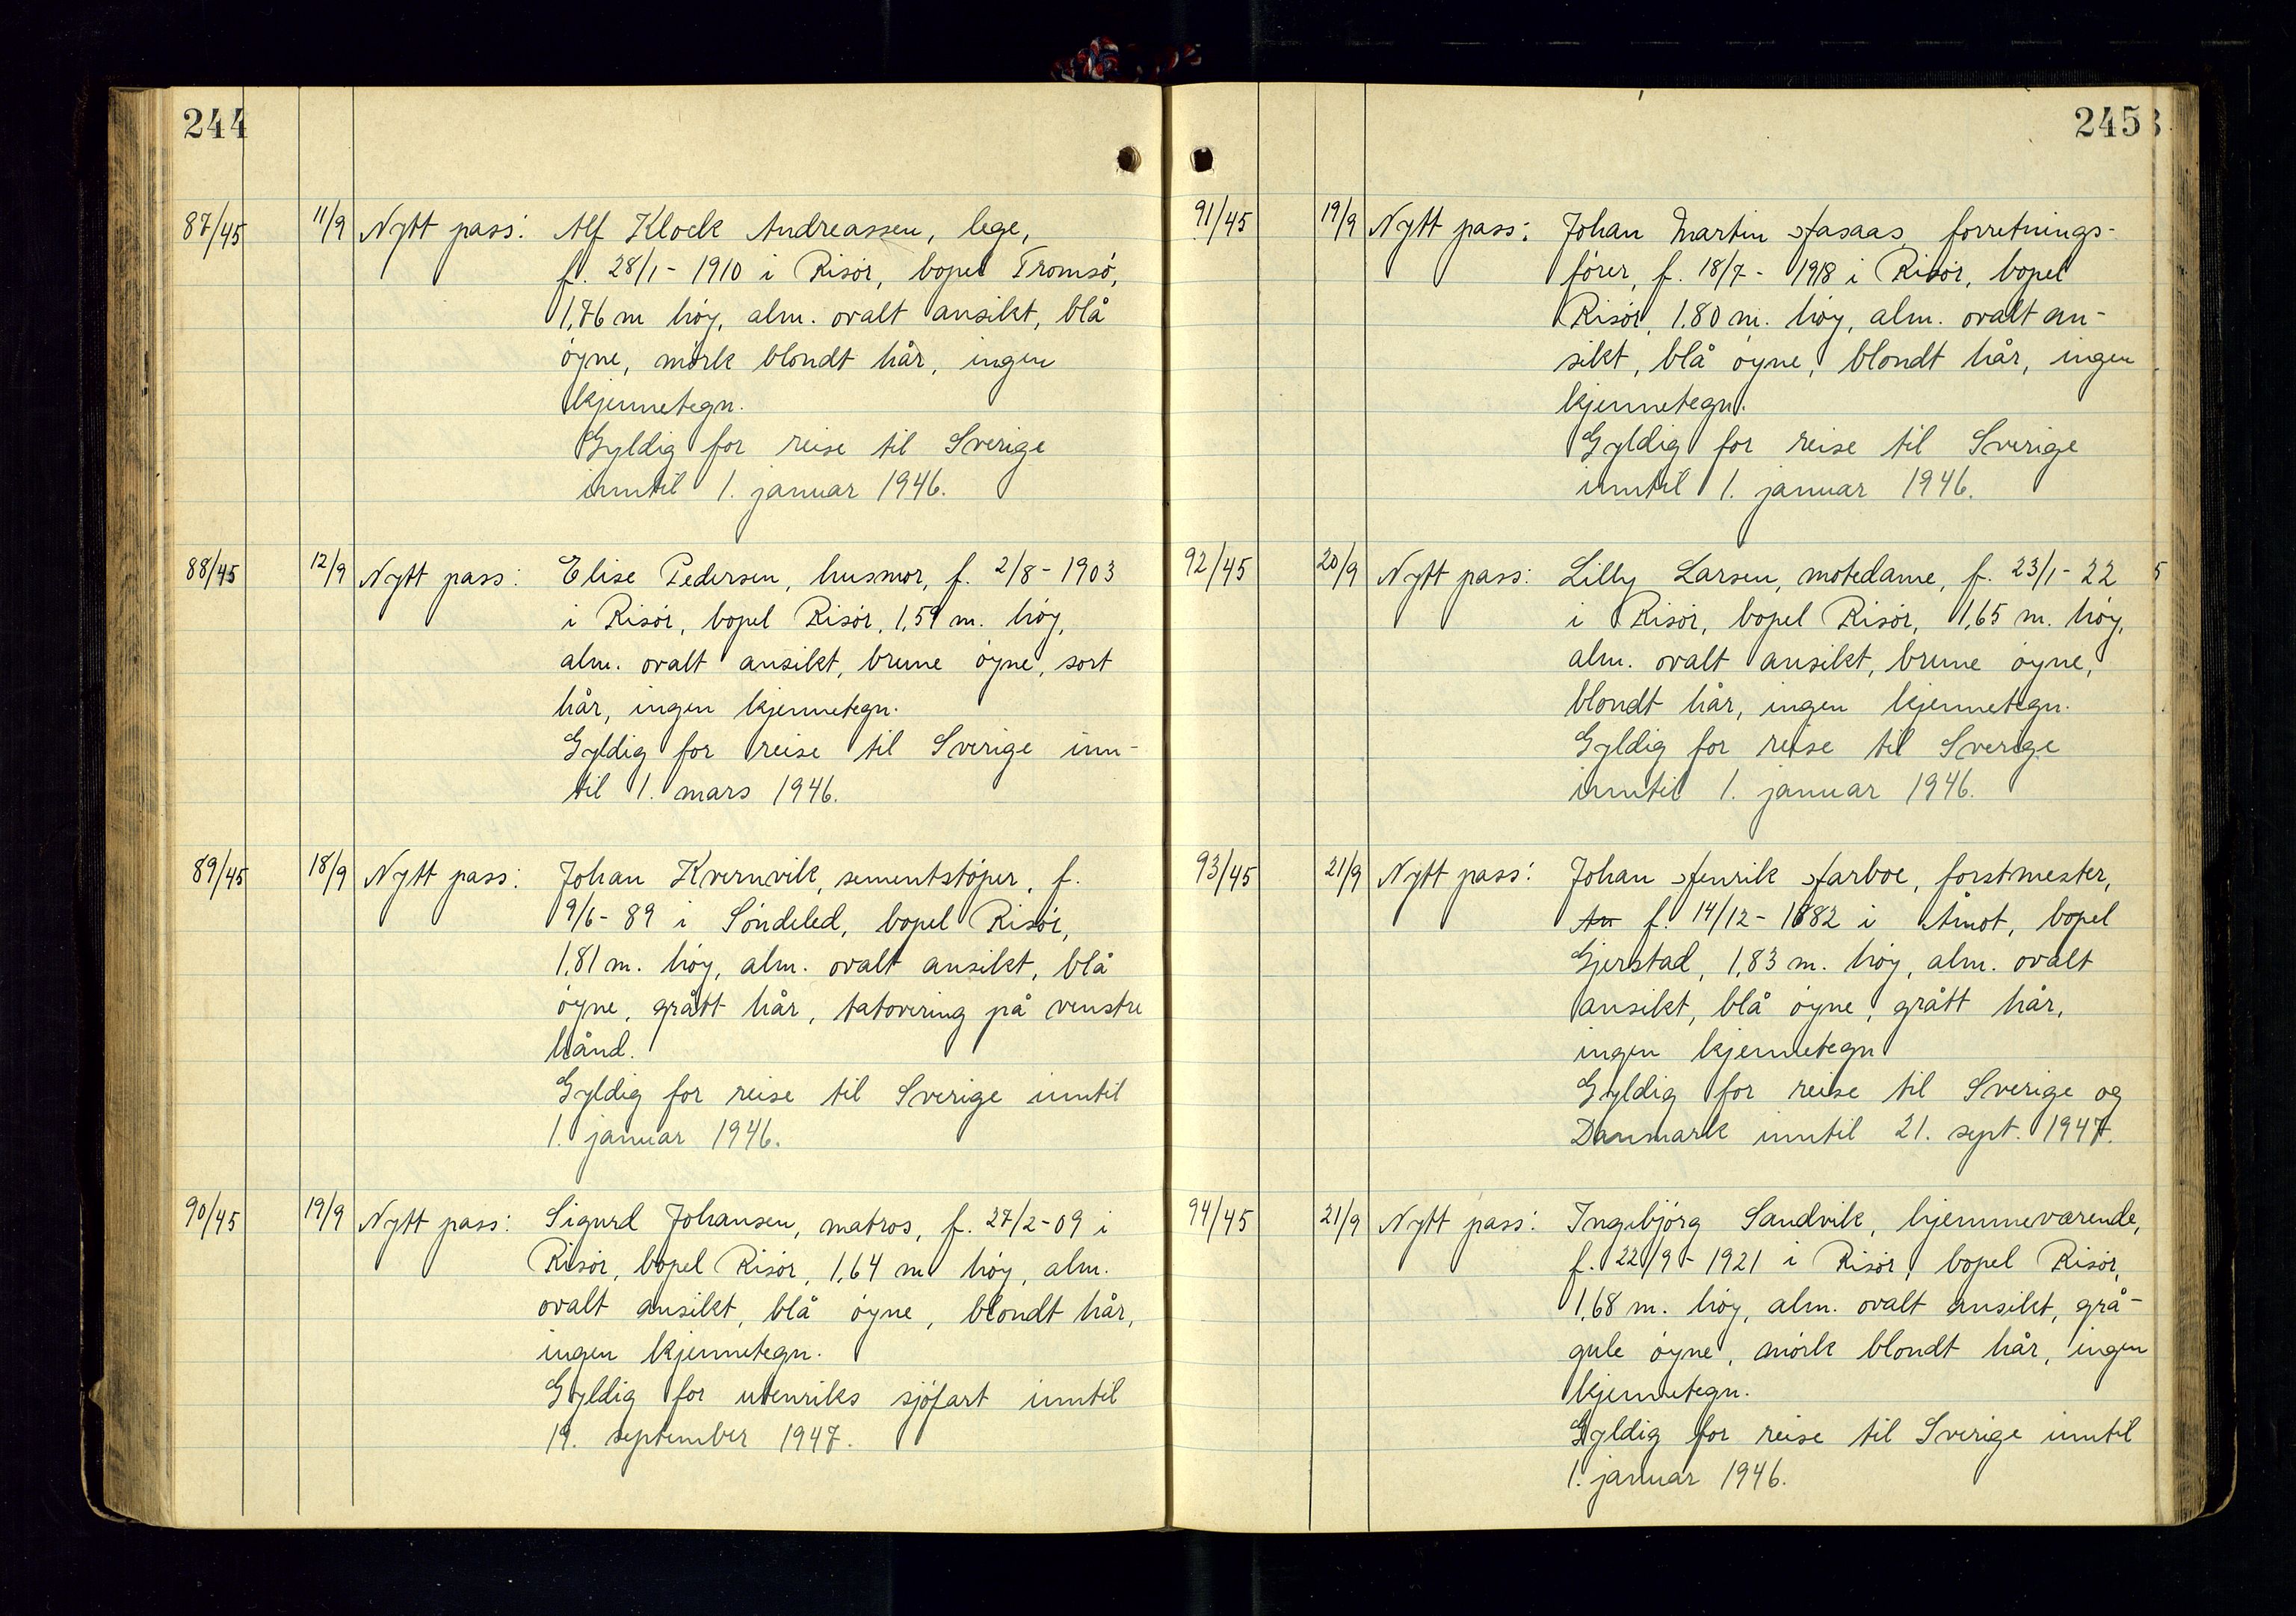 244
87/45 11/9 Nytt pass: Alf Klock Andreassen, lege,
f. 28/1 - 1910 i Risór, bopel Tromsó,
1,76 m hóy, alm. ovalt ansikt, blå
óyne, mórk blondt hår, ingen
kjennetegn.
Gyldig for reise til Sverige
inntil 1. januar 1946.
88/45 12/9 Nytt pass: Elise Pedersen, husmor, f. 2/8 - 1903
i Risór, bopel Risór, 1,59 m. hóy,
alm. ovalt ansikt, brune óyne, sort
hår, ingen kjennetegn.
Gyldig for reise til Sverige inn-
til 1. mars 1946.
89/45 18/9 Nytt pass: Johan Kvernvik, sementstóper, f.
9/6 - 89 i Sóndeled, bopel Risór,
1,81 m. hóy, alm. ovalt ansikt, blå
óyne, grått hår, tatovering på venstre
hånd.
Gyldig for reise til Sverige inntil
1. januar 1946.
90/45 19/9 Nytt pass: Sigurd Johansen, matros, f. 27/2 - 09 i
Risór, bopel Risór, 1,64 m hóy, alm.
ovalt ansikt, blå óyne, blondt hår,
ingen kjennetegn.
Gyldig for utenriks sjófart inntil
19. september 1947.
245
91/45 19/9 Nytt pass: Johan Martin Hasaas, forretnings-
fórer, f. 18/7 - 1918 i Risór, bopel
Risór, 1.80 m. hóy, alm. ovalt an-
sikt, blå óyne, blondt hår, ingen
kjennetegn.
Gyldig for reise til Sverige
inntil 1. januar 1946.
92/45 20/9 Nytt pass: Lilly Larsen, motedame, f. 23/1 - 22
i Risór, bopel Risór, 1,65 m. hóy,
alm. ovalt ansikt, brune óyne,
blondt hår, ingen kjennetegn.
Gyldig for reise til Sverige
inntil 1. januar 1946.
93/45 21/9 Nytt pass: Johan Henrik Harboe, forstmester,
f. 14/12 - 1882 i Åmot, bopel
Gjerstad, 1,83 m. hóy, alm. ovalt
ansikt, blå óyne, grått hår,
ingen kjennetegn
Gyldig for reise til Sverige og
Danmark inntil 21. sept. 1947.
94/45 21/9 Nytt pass: Ingebjórg Sandvik, hjemmeværende,
f. 22/9 - 1921 i Risór, bopel Risór,
1,68 m. hóy, alm. ovalt ansikt, grå-
gule óyne, mórk blondt hår, ingen
kjennetegn.
Gyldig for reise til Sverige inntil
1. januar 1946.